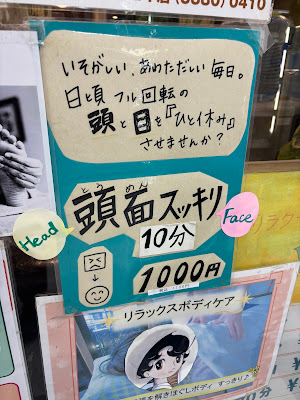 (0880) 0410
いそがしい、あわただしい毎日。
日頃フル回転の
頭と目を『ひと休み』
させませんか？
とう めん
頭面スッキリ
Head
Face
10分
1000円
リラックスボディケア
を解きほぐしボディ すっきり♪